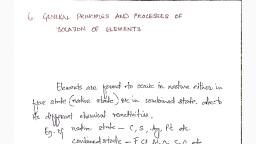 6. GENERAL PRINCIPLES AND PROCESSES OF
ISOLATION OF ELEMENTS
Elements are found to occur in nature either in
free state (native state) or in combined state due to
its different chemical reactivities.
Eg. of native state - C, S, Ag, Pt etc
combined state - F, Cl, N, O, S, C etc